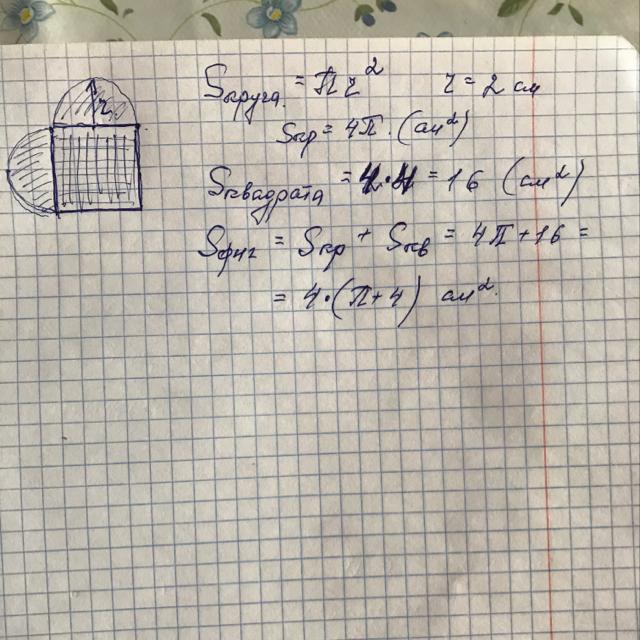 r
Sкруга. = πr² r = 2 см
Sкр = 4π · (см²)
Sквадрата = 4·4 = 16 (см²)
Sфиг = Sкр + Sкв = 4π + 16 =
= 4·(π+4) см².